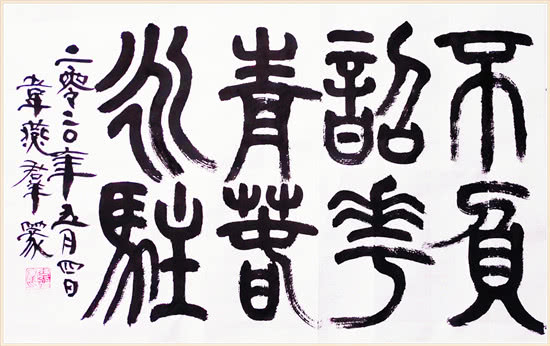 不負
詔華
青春
永駐
二零二〇年五月四日
韋燕群